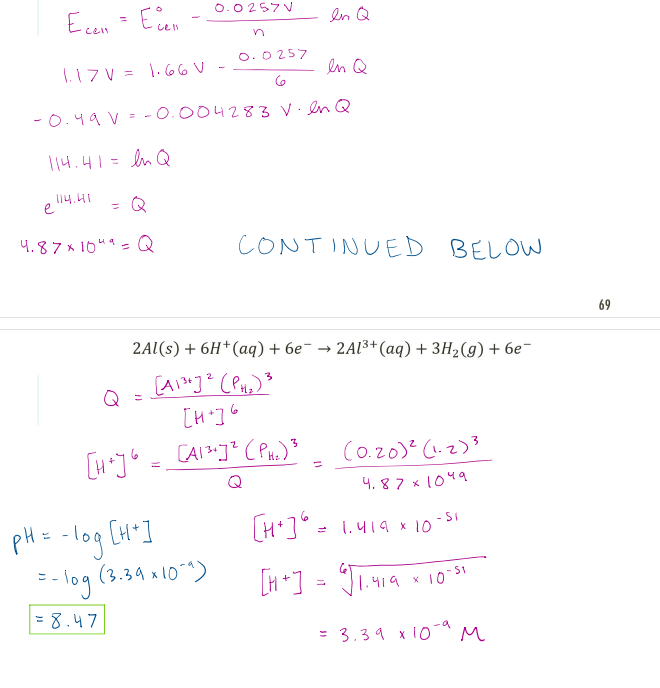 E cell = E° cell - 0.0257V / n ln Q
1.17 V = 1.66 V - 0.0257 / 6 ln Q
-0.49 V = -0.004283 V · ln Q
114.41 = ln Q
e^114.41 = Q
4.87 x 10^49 = Q CONTINUED BELOW
69
2Al(s) + 6H⁺(aq) + 6e⁻ → 2Al³⁺(aq) + 3H₂(g) + 6e⁻
Q = [Al³⁺]² (P_H₂)³ / [H⁺]⁶
[H⁺]⁶ = [Al³⁺]² (P_H₂)³ / Q = (0.20)² (1.2)³ / 4.87 x 10^49
pH = -log [H⁺] [H⁺]⁶ = 1.419 x 10^-51
= -log (3.39 x 10^-9) [H⁺] = ⁶√1.419 x 10^-51
= 8.47 = 3.39 x 10^-9 M